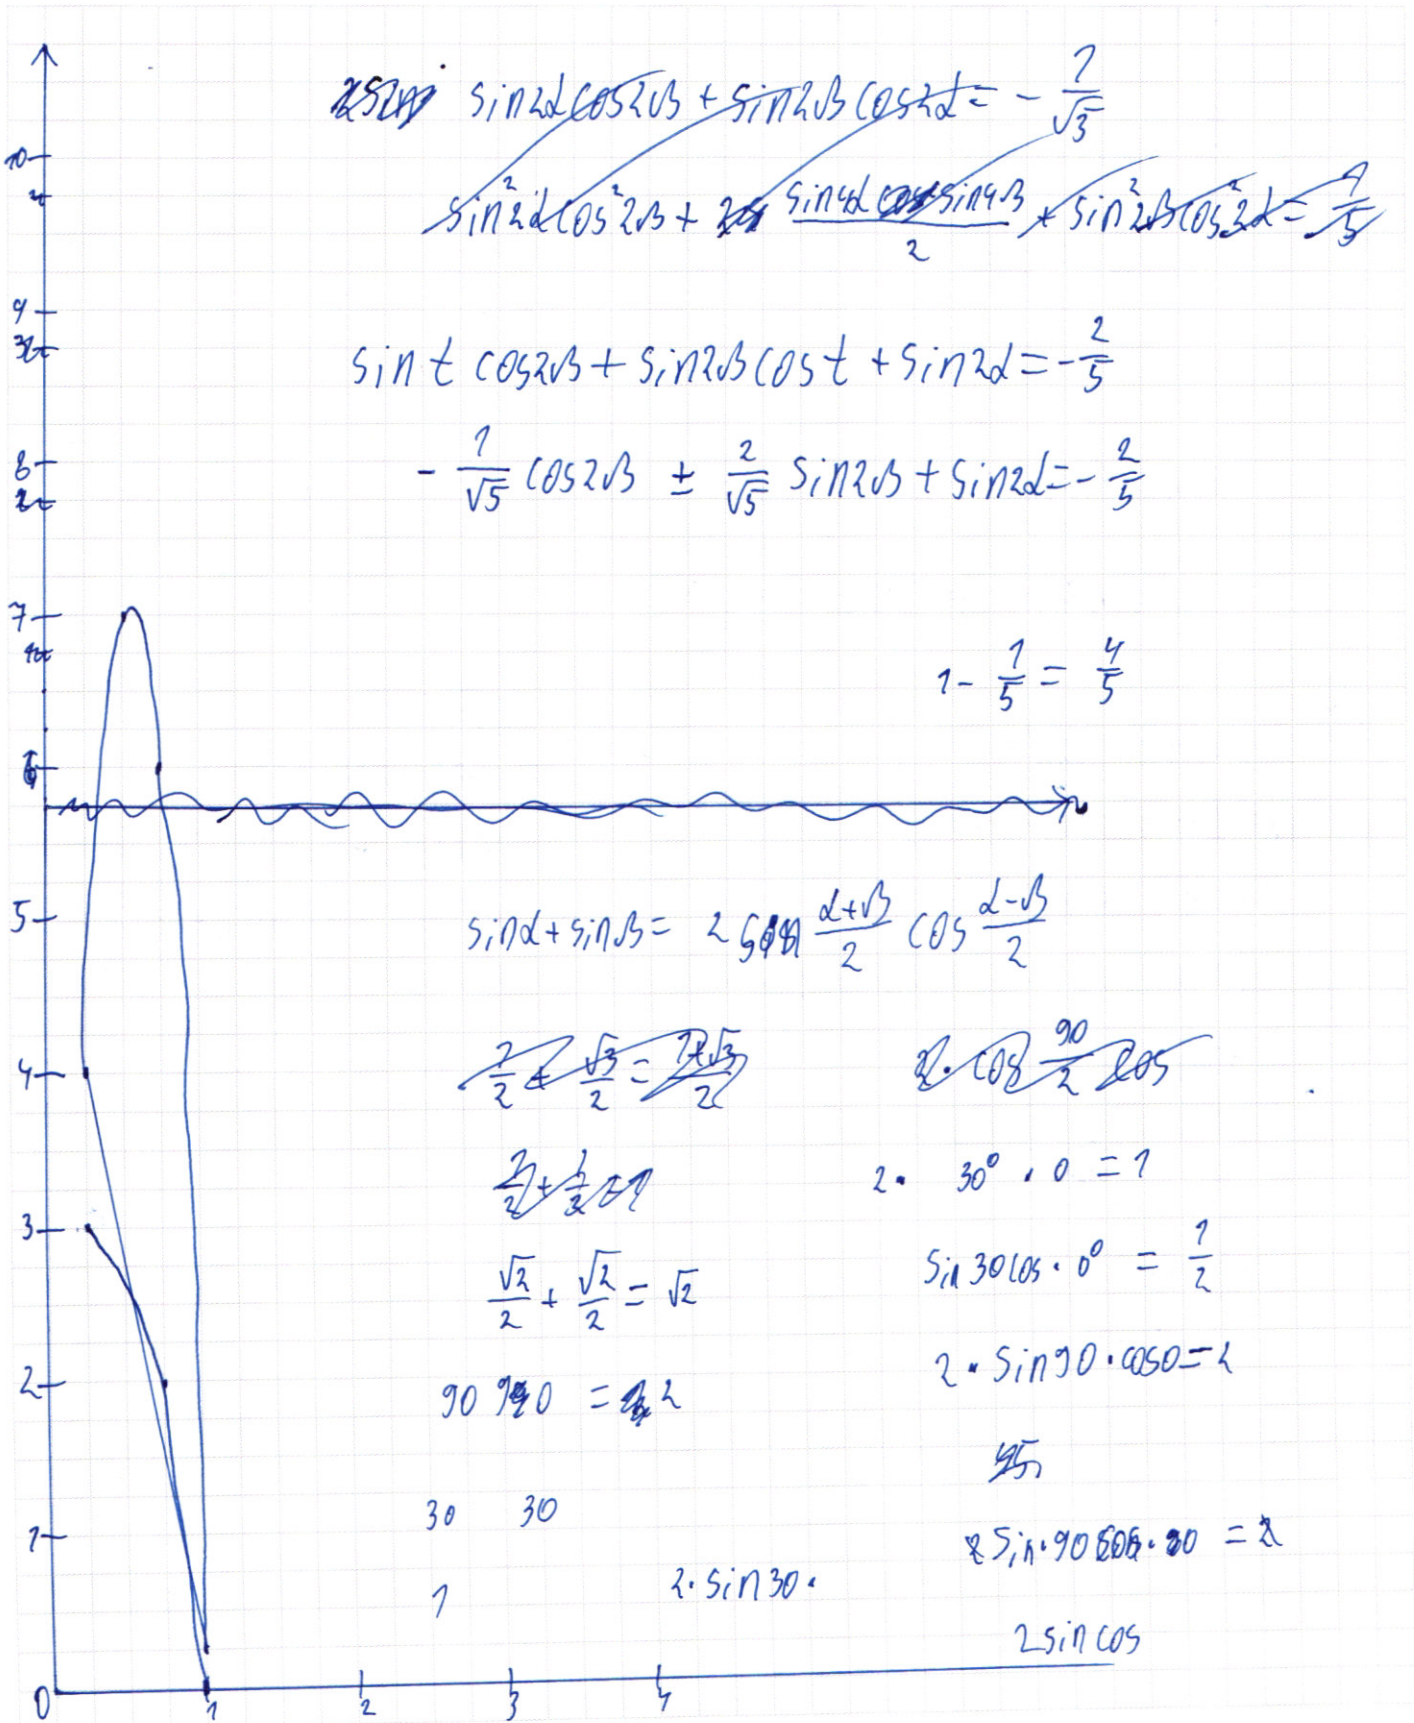 sin2α cos2β + sin2β cos2α = - 1/√5
sin²2α cos²2β + sin4α sin4β / 2 + sin²2β cos²2α = 1/5
sin t cos2β + sin2β cos t + sin2α = - 2/5
- 1/√5 cos2β ± 2/√5 sin2β + sin2α = - 2/5
1 - 1/5 = 4/5
sinα + sinβ = 2 sin (α+β)/2 cos (α-β)/2
1/2 + √3/2 = (1+√3)/2
2 · cos 90/2 cos
1/2 + 1/2 = 1
2 · 30° · 0 = 1
√2/2 + √2/2 = √2
sin 30 cos · 0° = 1/2
90 90 = 2
2 · sin90 · cos0 = 2
45
30 30
2 sin · 90 cos · 0 = 2
1
2 · sin30 ·
2 sin cos
10
9
8
7
6
5
4
3
2
1
0 1 2 3 4